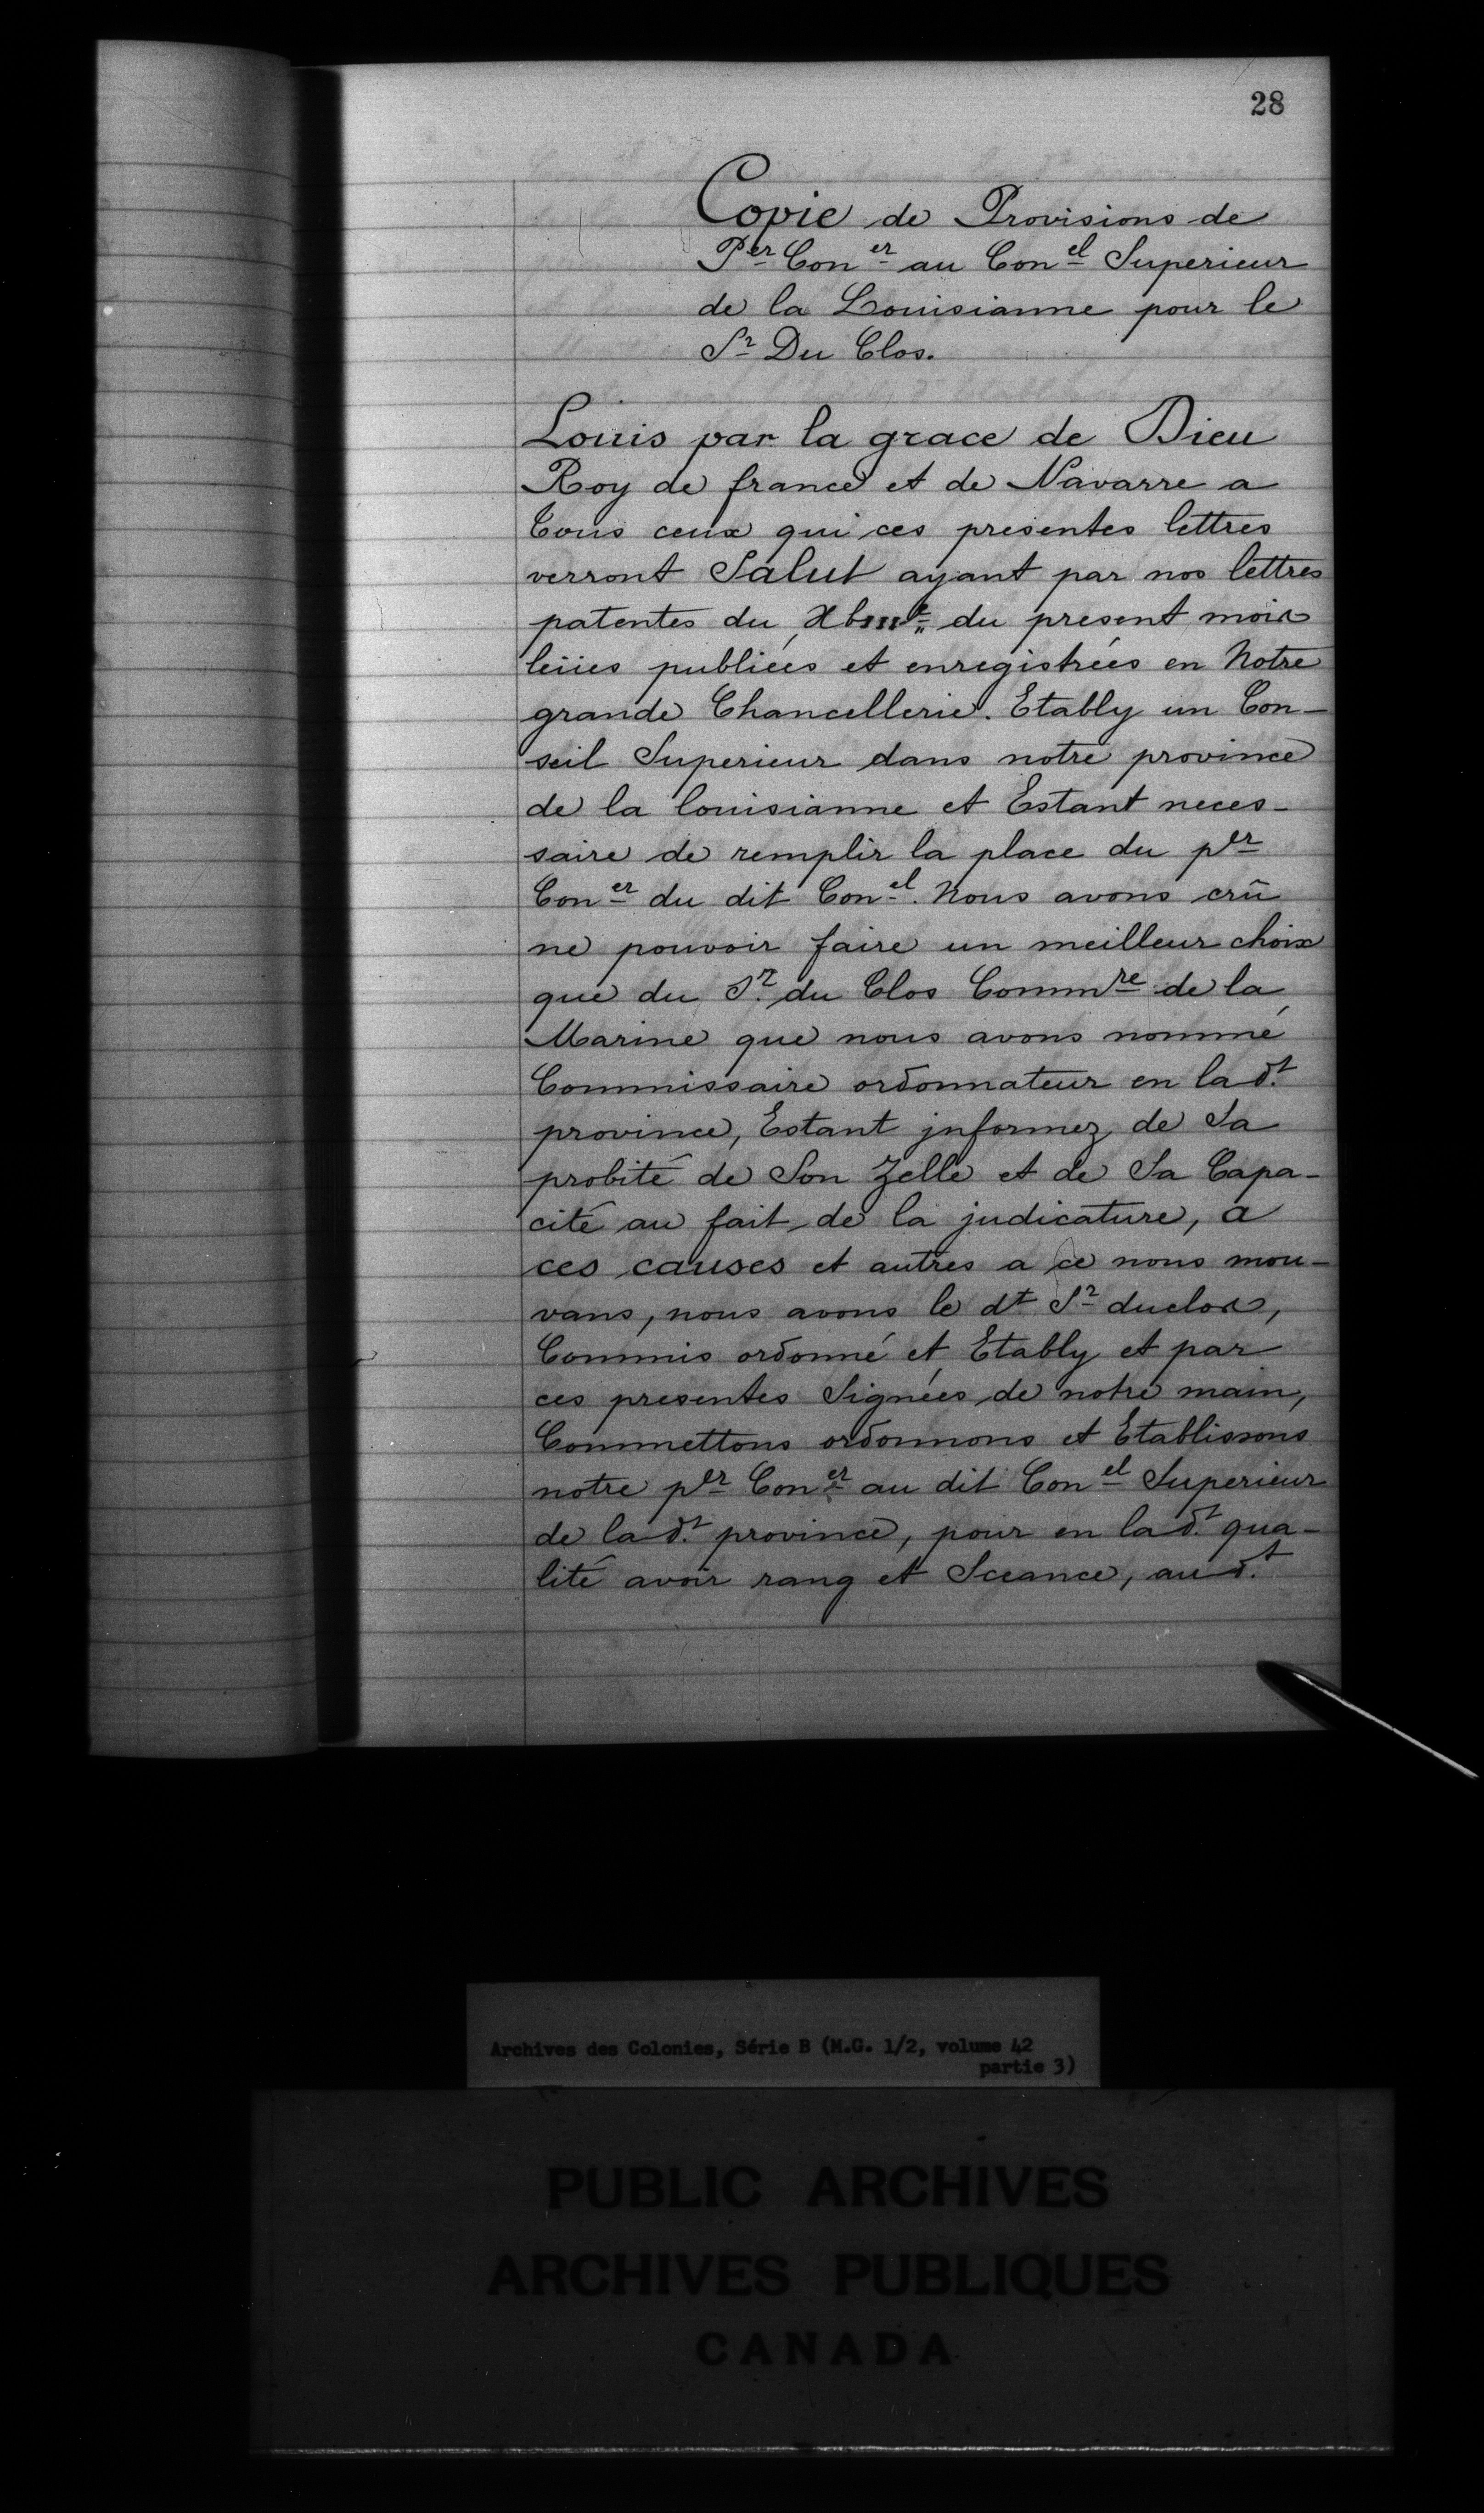 28
Copie de Provisions de
Per Coner au Conel Superieur
de la Louisianne pour le
Sr Du Clos.
Louis par la grace de Dieu
Roy de france et de Navarre a
Tous ceux qui ces presentes lettres
verront Salut ayant par nos lettres
patentes du du present mois
leües publiées et enregistrées en Notre
grande Chancellerie. Etably un Con-
seil Superieur dans notre province
de la louisianne et Estant neces-
saire de remplir la place du per
Coner du dit Conel. Nous avons crû
ne pouvoir faire un meilleur choix
que du Sr. du Clos Commre de la
Marine que nous avons nommé
Commissaire ordonnateur en la dt.
province, Estant jnformez de Sa
probité de Son Zelle et de Sa Capa-
cité au fait de la judicature, a
ces causes et autres a ce nous mou-
vans, nous avons le dt Sr duclos,
Commis ordonné et Etably et par
ces presentes Signées de notre main,
Commettons ordonnons et Etablissons
notre per Coner au dit Conel Superieur
de la dt. province, pour en la dt. qua-
lité avoir rang et Sceance, au dt.
Archives des Colonies, Série B (M.G. 1/2, volume 42
partie 3)
PUBLIC ARCHIVES
ARCHIVES PUBLIQUES
CANADA